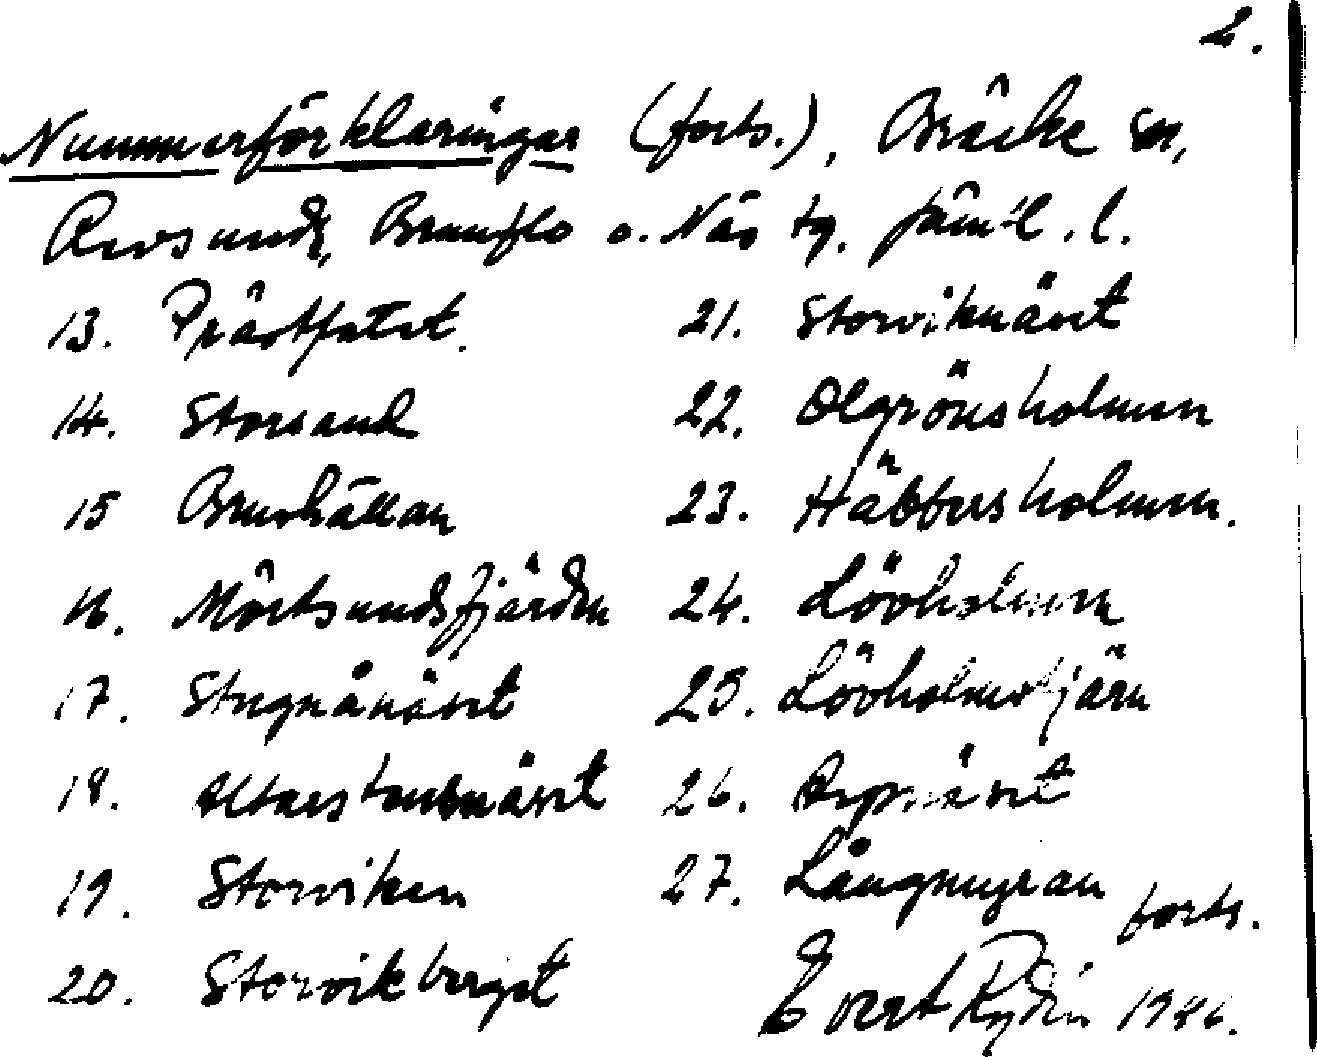 2.
Nummerförklaringar (forts.), Bräcke sn,
Revsunds, Brunflo o. Näs tg. Jämtl. l.
13. Prästfatet.
14. Storsand
15 Brushällan
16. Mörtsundsfjärden
17. Stugnånäset
18. näset
19. Storviken
20. Storvikberget
21. Storviknäset
22. Olgrönsholmen
23. Häbbersholmen.
24. Lövholmen
25. Lövholmstjärn
26. Arpnäset
27. Långmyran
forts.
Evert Rydin 1986.